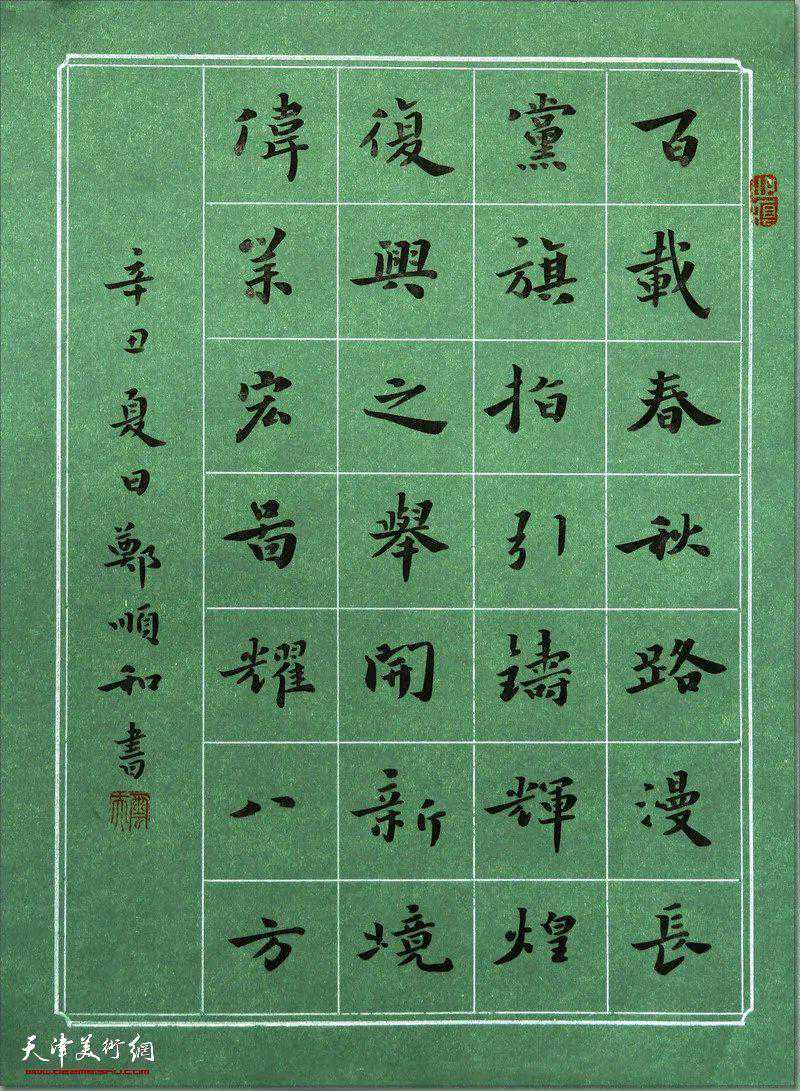 百載春秋路漫長
黨旗指引鑄輝煌
復興之舉開新境
偉業宏啚耀八方
辛丑夏日鄭順和書
天津美術網